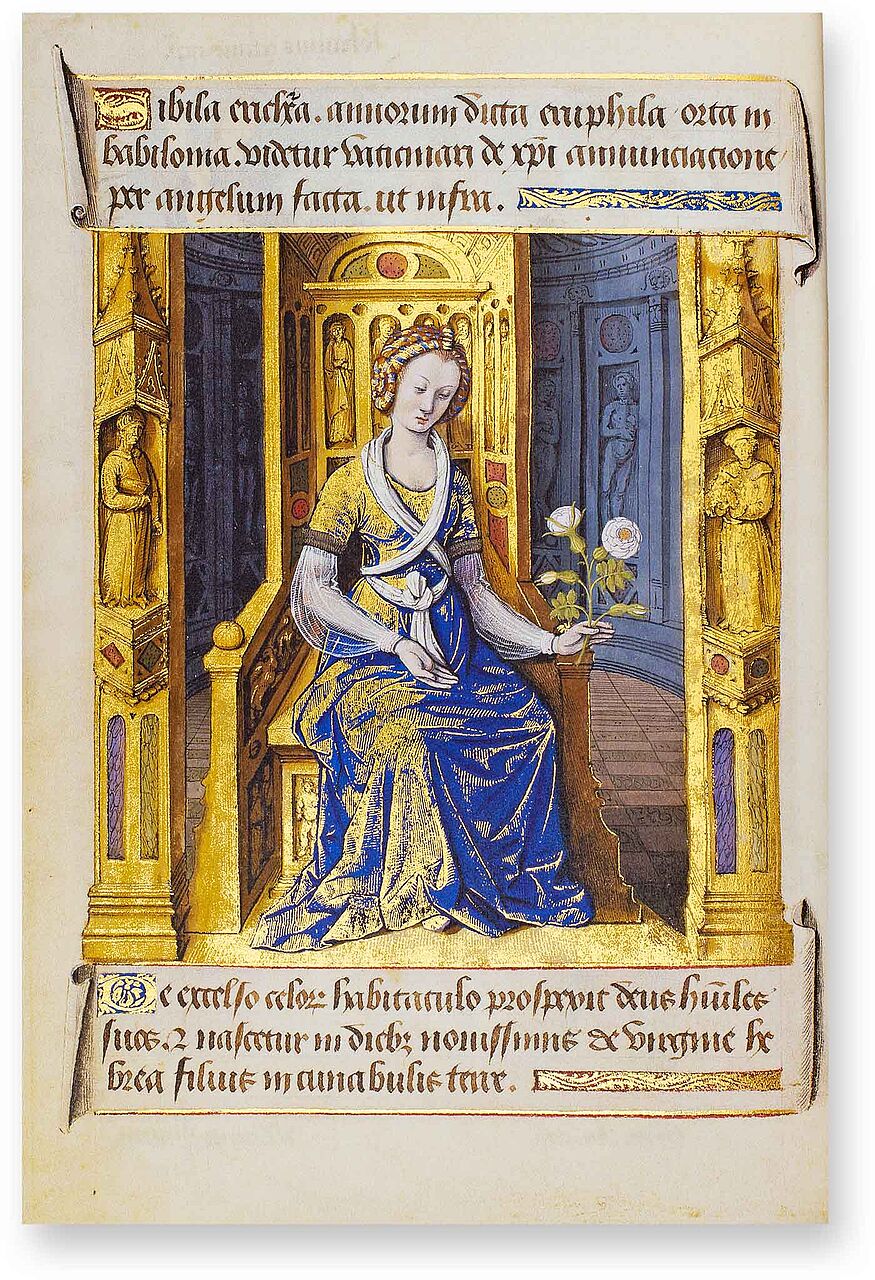 Sibila annorum dicta eriphila orta in
babilonia. videtur vaticinari de xp̄i annunciacione
per angelum facta. ut infra.
De excelso celoꝝ habitaculo prospexit deus hūiles
suos. ⁊ nascetur in diebꝫ novissimis de virgine he
brea filius in cunabulis terre.